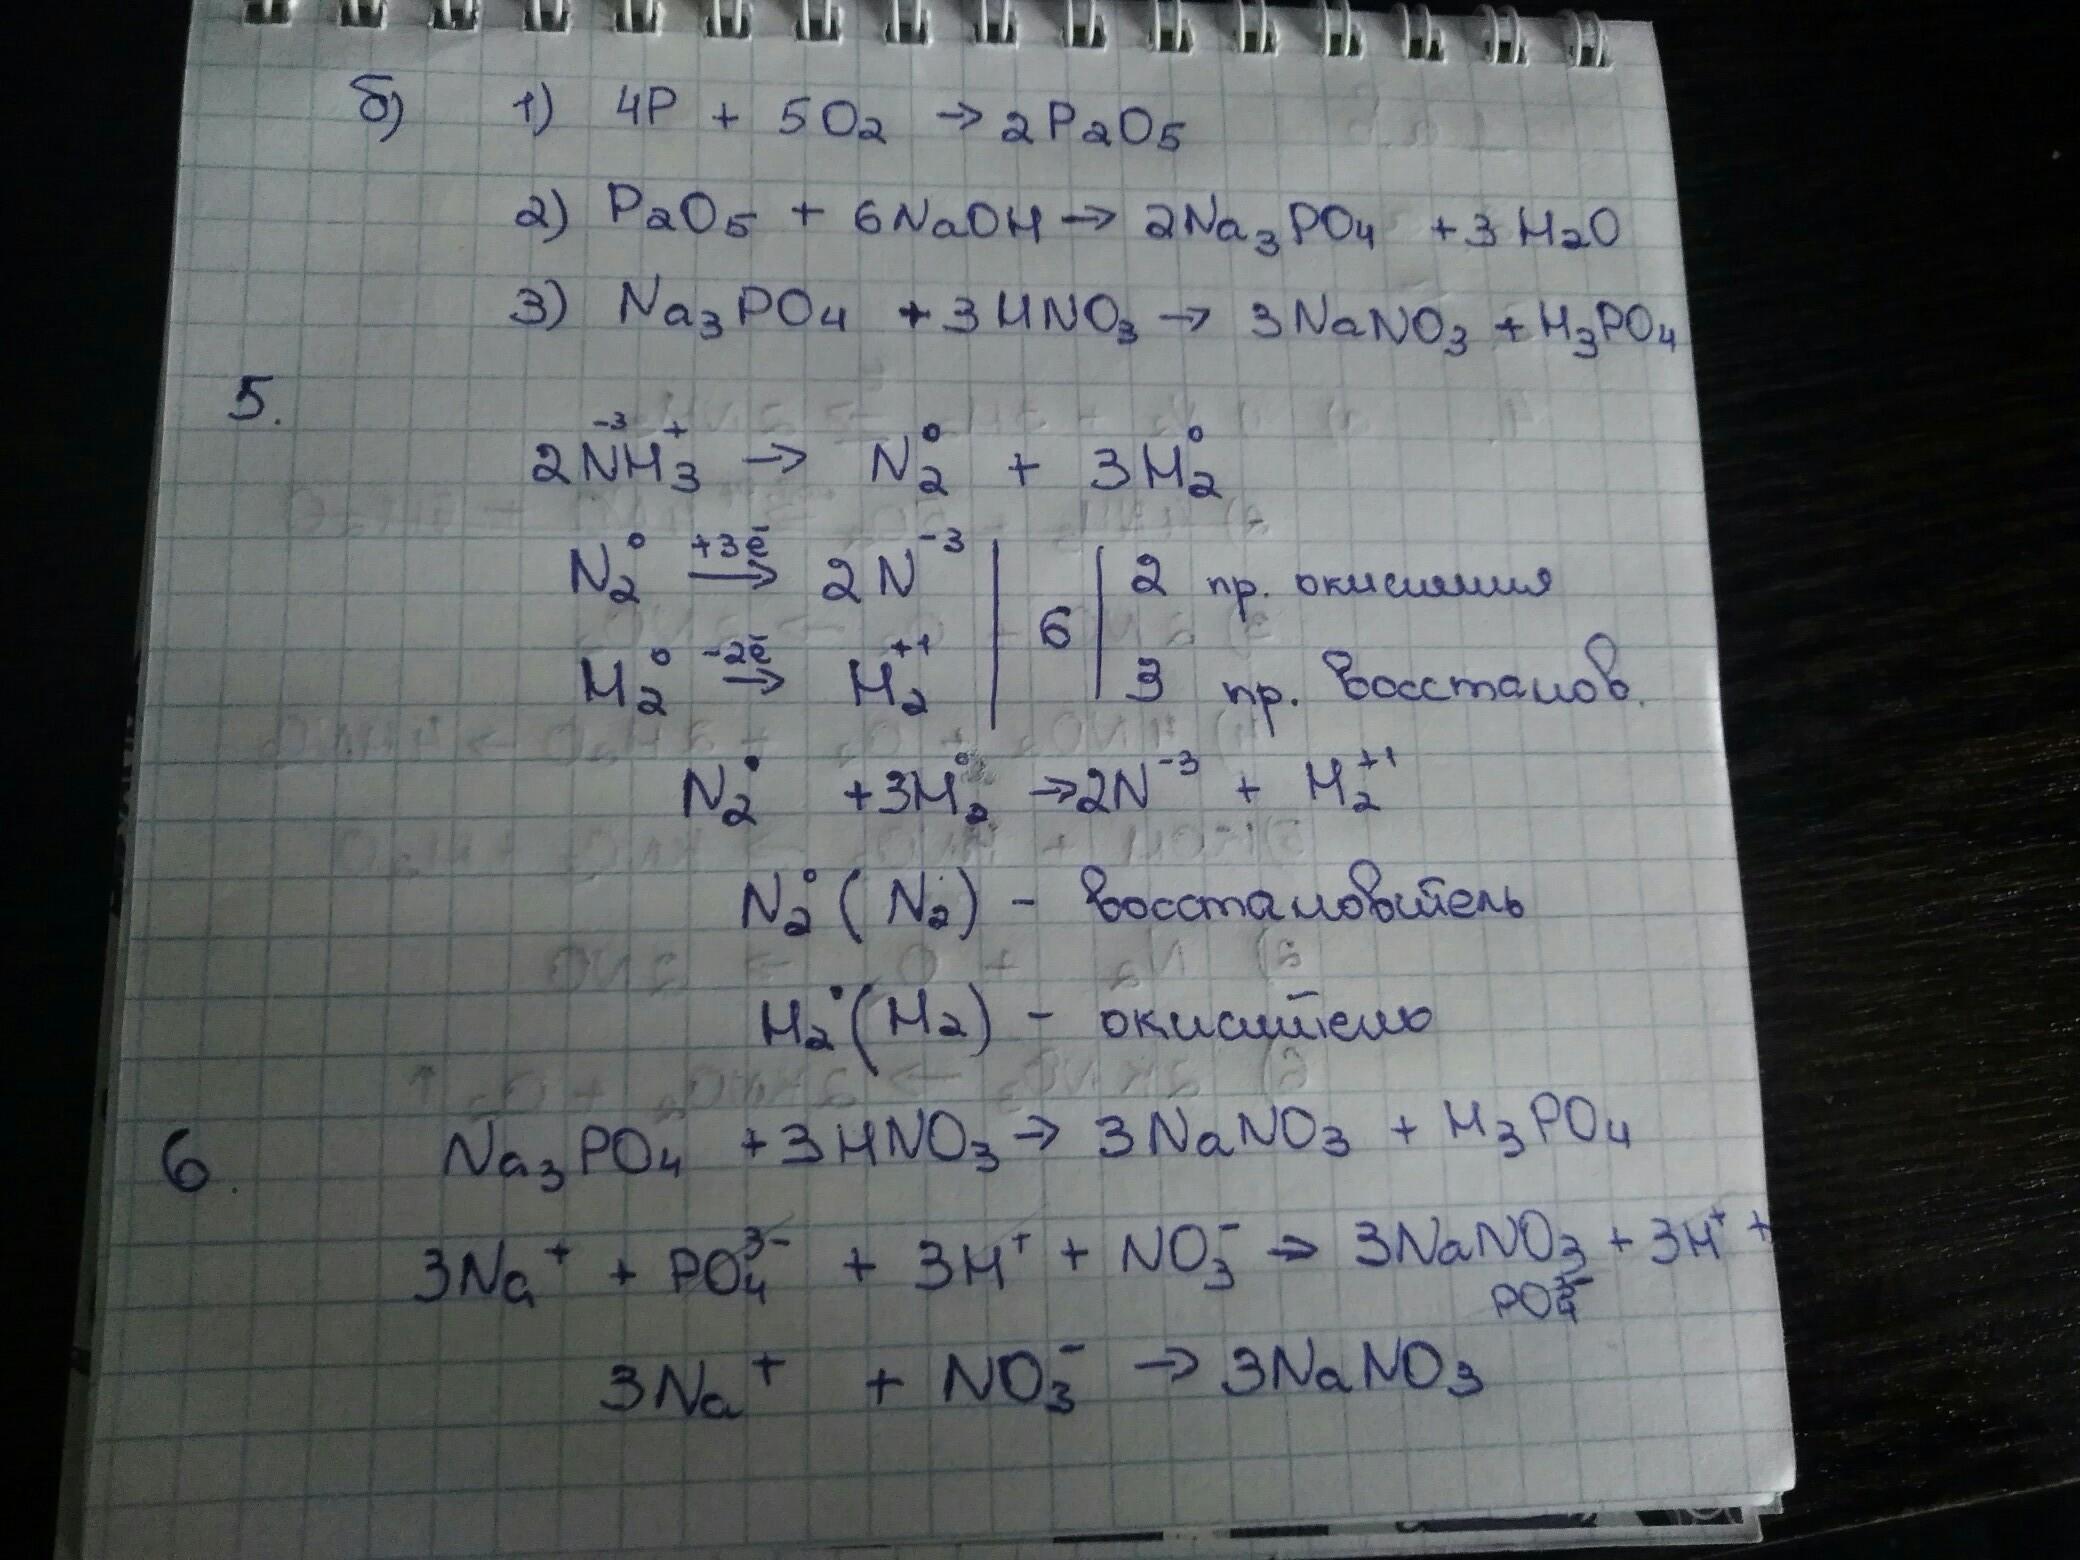 б) 1) 4P + 5O2 → 2P2O5
2) P2O5 + 6NaOH → 2Na3PO4 + 3H2O
3) Na3PO4 + 3HNO3 → 3NaNO3 + H3PO4
5.
2N⁻³H⁺3 → N2⁰ + 3H2⁰
N2⁰ +3ē → 2N⁻³ | 6 | 2 пр. окисления
H2⁰ -2ē → H2⁺¹ | 3 пр. восстанов.
N2⁰ + 3H2⁰ → 2N⁻³ + H2⁺¹
N2⁰ (N2) - восстановитель
H2⁰ (H2) - окислитель
6. Na3PO4 + 3HNO3 → 3NaNO3 + H3PO4
3Na⁺ + PO4³⁻ + 3H⁺ + NO3⁻ → 3NaNO3 + 3H⁺ +
PO4³⁻
3Na⁺ + NO3⁻ → 3NaNO3